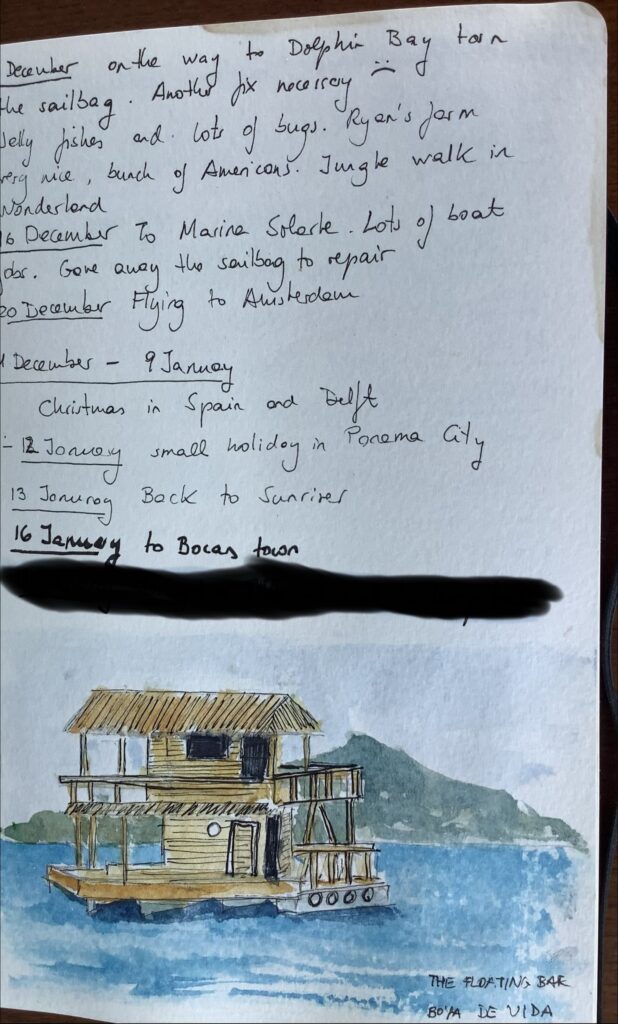 December on the way to Dolphin Bay torn
the sailbag. Another fix necessary :(
Jelly fishes and lots of bugs. Ryan's farm
very nice, bunch of Americans. Jungle walk in
Wonderland
16 December To Marina Solarte. Lots of boat
jobs. Gave away the sailbag to repair
20 December Flying to Amsterdam
December – 9 January
Christmas in Spain and Delft
- 12 January small holiday in Panama City
13 January Back to Sunriver
16 January to Bocas town
THE FLOATING BAR
BOYA DE VIDA